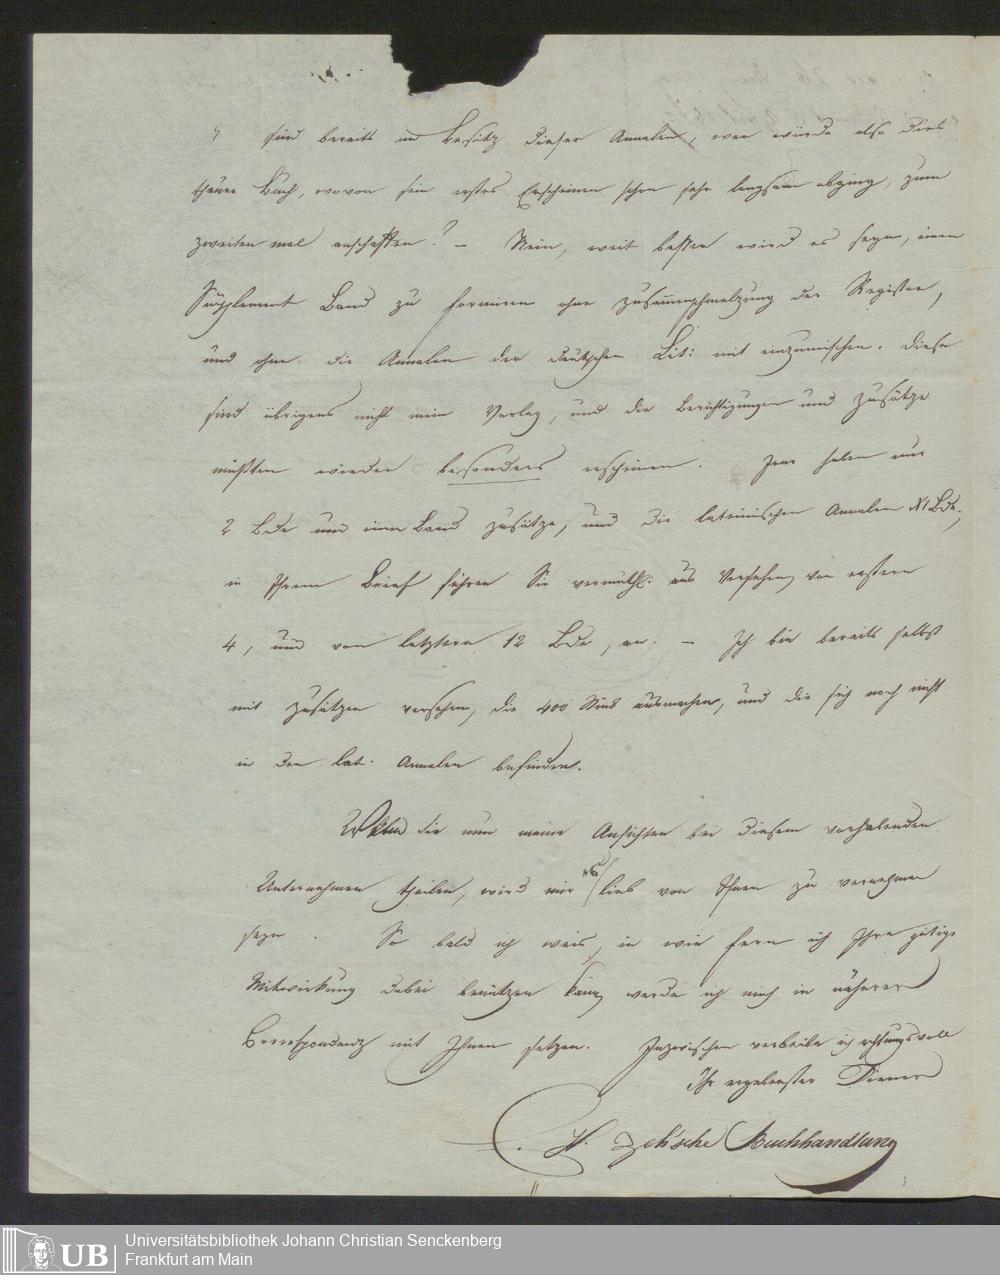 sind bereits im Besitz dieser Annalen, wer würde also dies
theure Buch, wovon sein erstes Erscheinen schon sehr langsam abging, zum
zweiten mal anschaffen? – Nein, weit besser wird es seyn, einen
Supplement Band zu formiren ohne Zusammenschmelzung der Register,
und ohne die Annalen der deutschen Lit: mit einzumischen. Diese
sind übrigens nicht mein Verlag, und die Berichtigungen und Zusätze
müßten wieder besonders erscheinen. Jene haben nur
2 Bde und einen Band Zusätze, und die lateinischen Annalen XI Bde,
in Ihrem Brief führen Sie vermuthl: aus Versehen, von erstern
4, und von letztern 12 Bde, an. – Ich bin bereits selbst
mit Zusätzen versehen, die 400 ausmachen, und die sich noch nicht
in den lat. Annalen befinden.
Sie nun meine Ansichten bei diesem vorhabenden
Unternehmen theilen, wird mir es lieb von Ihnen zu vernehmen
seyn. So bald ich weis, in wie fern ich Ihre gütige
Mitwirkung dabei benutzen kann, werde ich mich in näherer
Correspondenz mit Ihnen setzen. Inzwischen verbleibe ich achtungsvoll
Ihr ergebenster Diener
C. H. Zeh'sche Buchhandlung
UB
Universitätsbibliothek Johann Christian Senckenberg
Frankfurt am Main